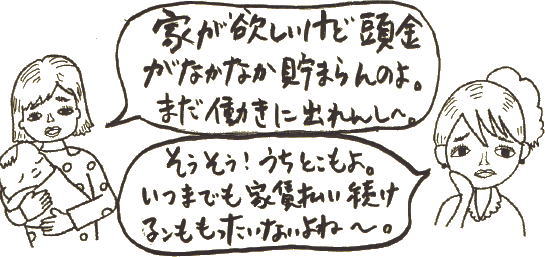 家が欲しいけど頭金
がなかなか貯まらんのよ。
まだ働きに出れんし〜。
そうそう！うちとこもよ。
いつまでも家賃払い続け
るンももったいないよね〜。